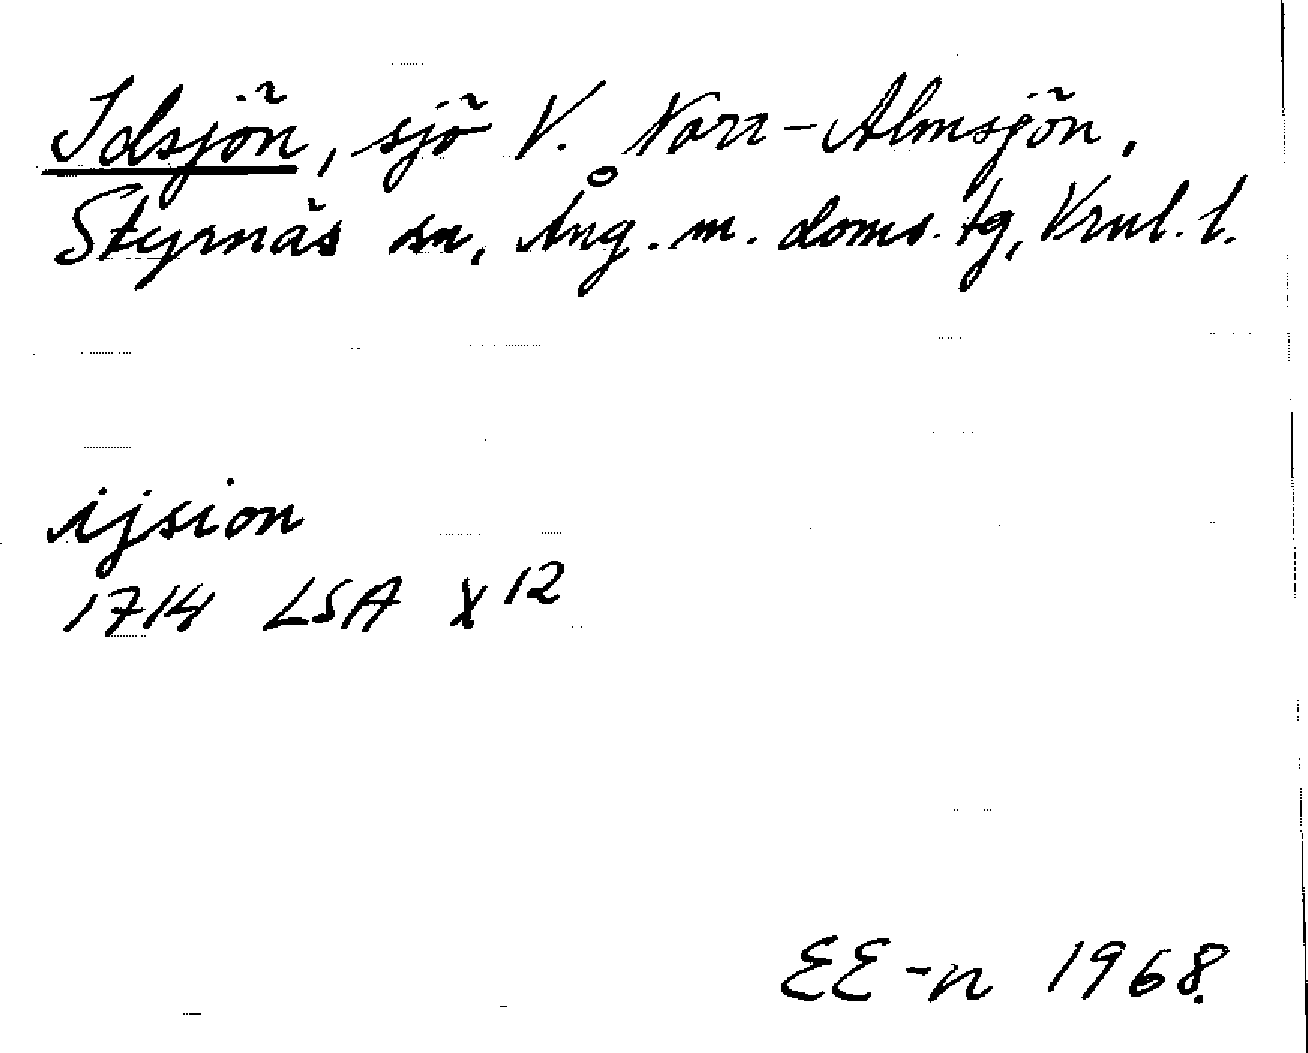 Idsjön, sjö V. Norr-Almsjön,
Styrnäs sn, Ång. m. doms. tg, Vrnl. l.
ijsion
1714 LSA X 12
EE-n 1968.